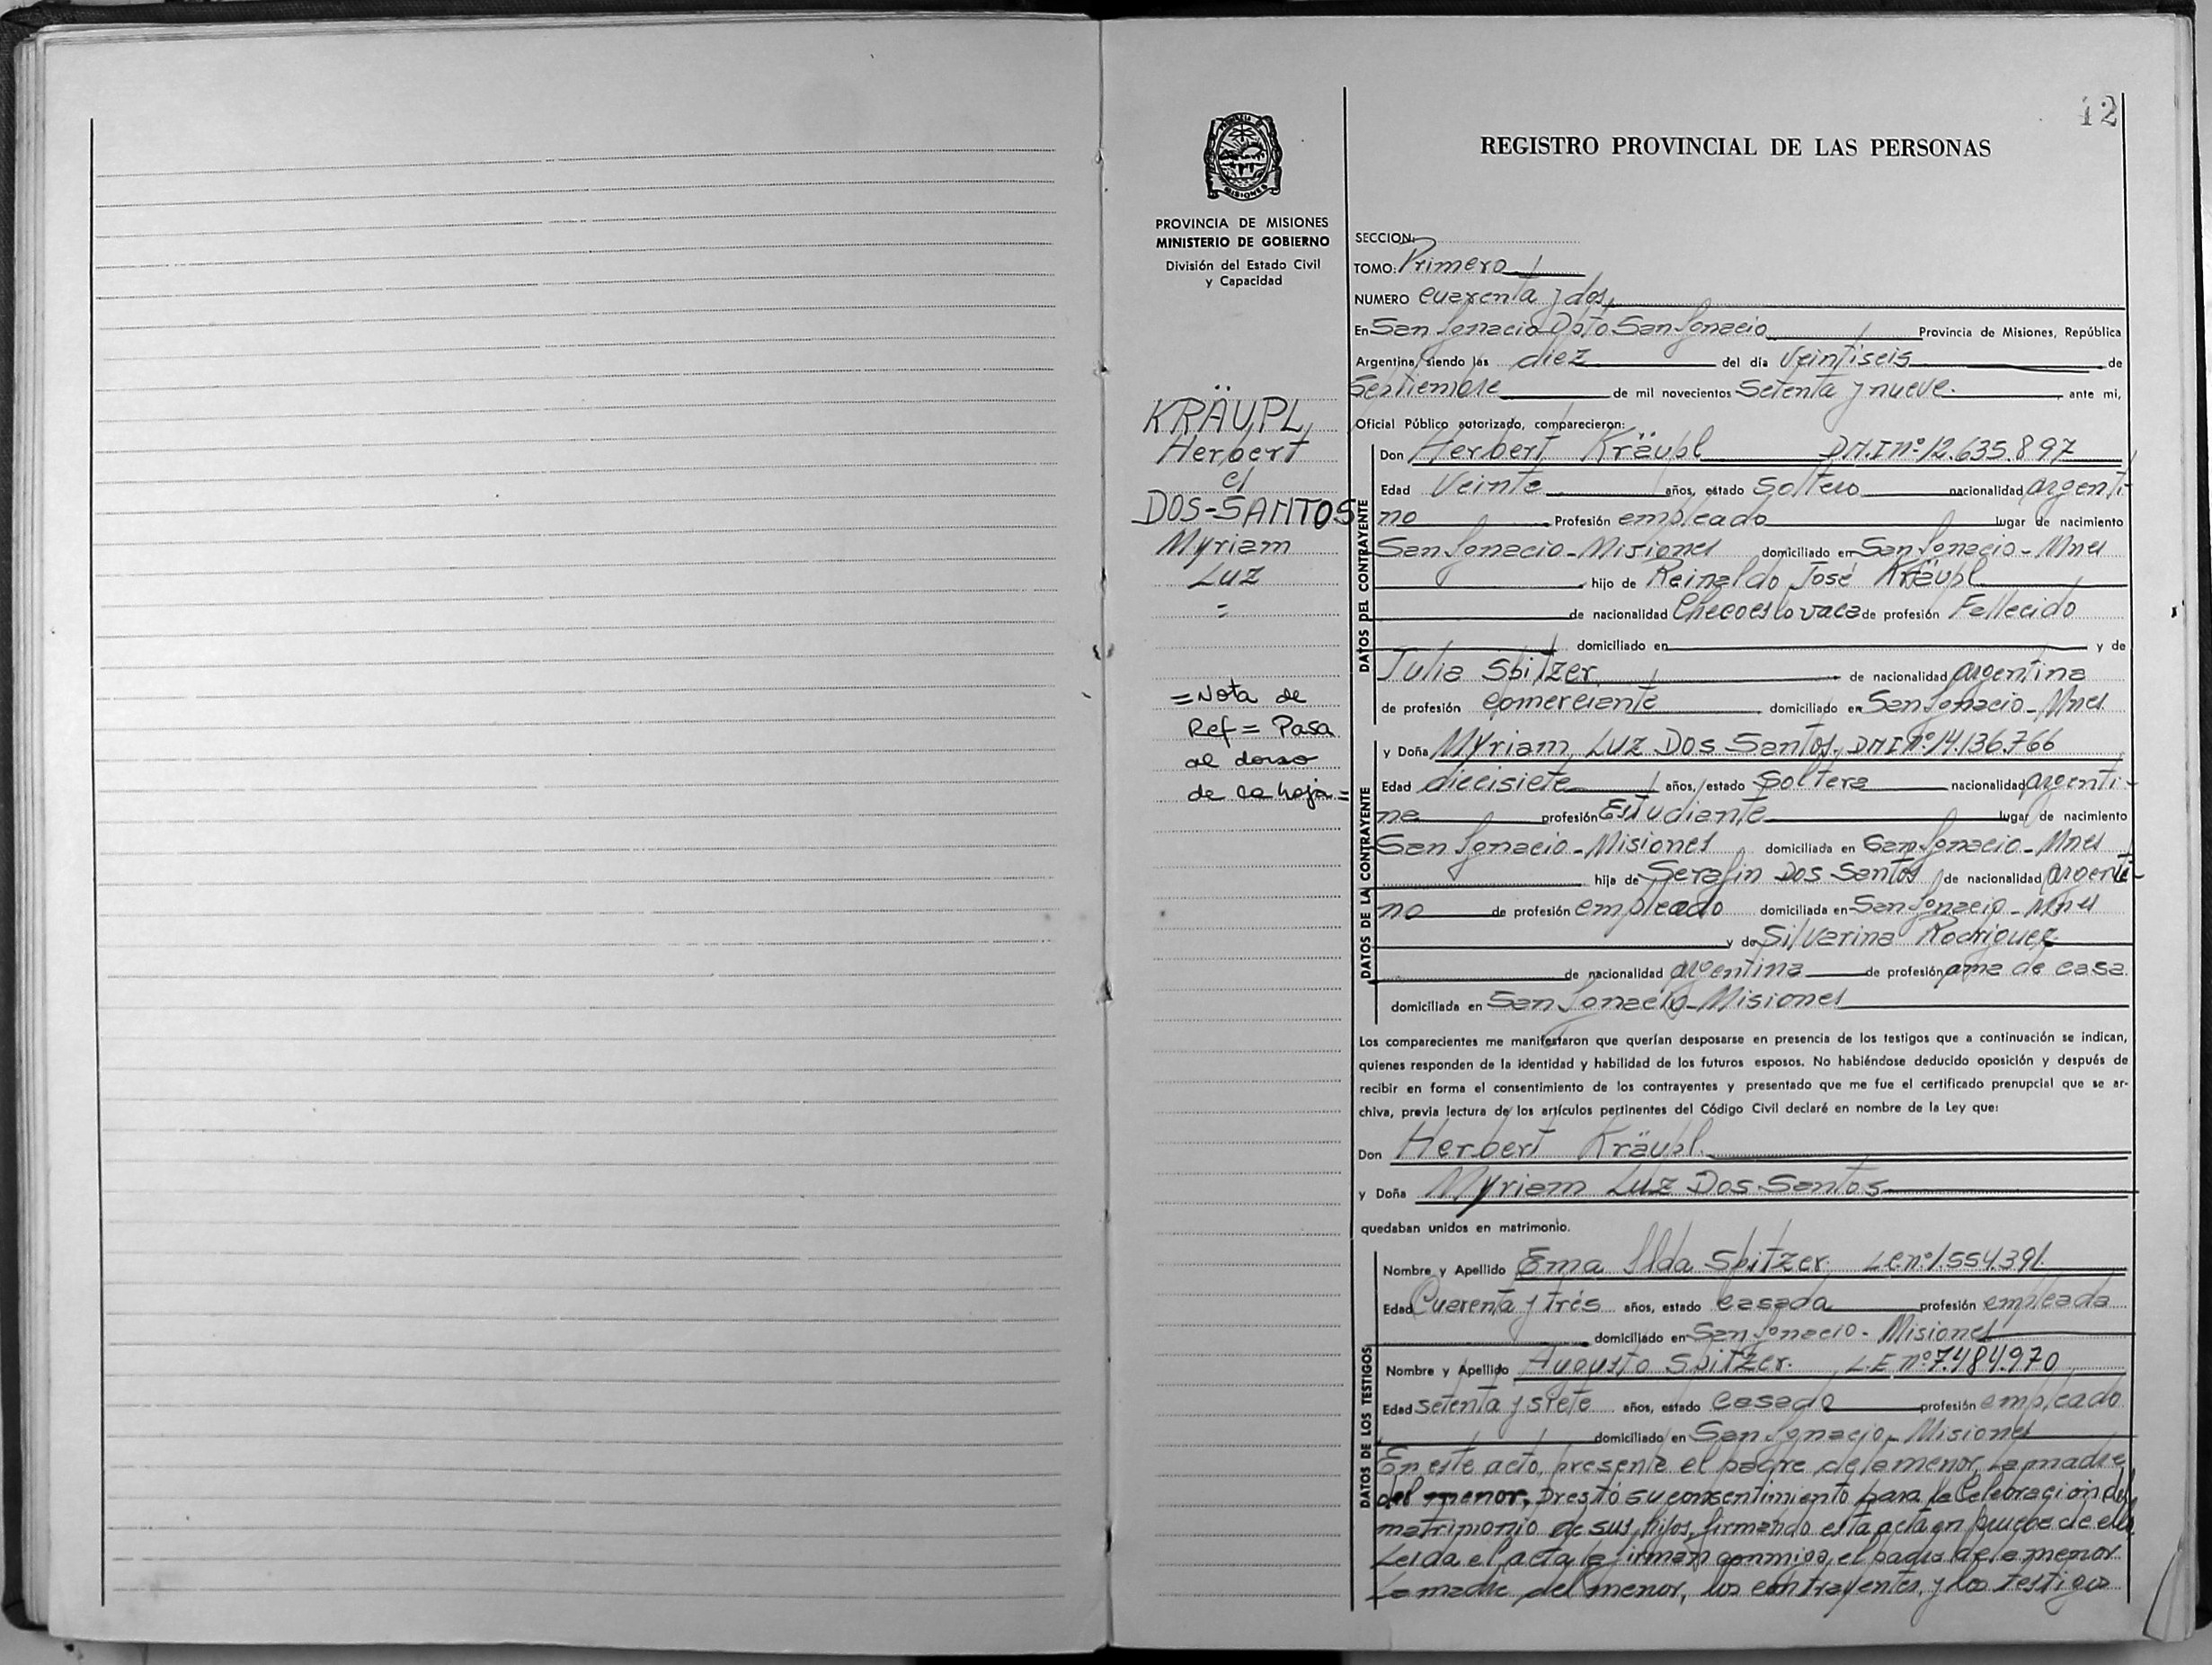 42
REGISTRO PROVINCIAL DE LAS PERSONAS
PROVINCIA DE MISIONES
MINISTERIO DE GOBIERNO
División del Estado Civil
y Capacidad
KRÄUPL,
Herbert
c/
DOS-SANTOS
Myriam
Luz
=
=Nota de
Ref= Pasa
al dorso
de la hoja=
SECCION:
TOMO: Primero
NUMERO cuarenta y dos,
En San Ignacio Dpto San Ignacio Provincia de Misiones, República
Argentina, siendo las diez del día veintiseis de
Septiembre de mil novecientos setenta y nueve. ante mi,
Oficial Público autorizado, comparecieron:
DATOS DEL CONTRAYENTE
Don Herbert Kräupl DN.I nº 12.635.897
Edad Veinte años, estado soltero nacionalidad argenti-
no Profesión empleado lugar de nacimiento
San Ignacio-Misiones domiciliado en San Ignacio-Mnes
hijo de Reinaldo José Kräupl
de nacionalidad Checoeslovaca de profesión Fallecido
domiciliado en y de
Julia Spitzer de nacionalidad argentina
de profesión comerciante domiciliado en San Ignacio-Mnes
DATOS DE LA CONTRAYENTE
y Doña Myriam Luz Dos Santos. DNI Nº 14.136.766
Edad diecisiete años, estado soltera nacionalidad argenti-
na profesión Estudiante lugar de nacimiento
San Ignacio-Misiones domiciliada en San Ignacio-Mnes
hija de Serafin Dos Santos de nacionalidad argenti-
no de profesión empleado domiciliada en San Ignacio-Mnes
y de Silverina Rodriguez
de nacionalidad argentina de profesión ama de casa
domiciliada en San Ignacio-Misiones
Los comparecientes me manifestaron que querían desposarse en presencia de los testigos que a continuación se indican,
quienes responden de la identidad y habilidad de los futuros esposos. No habiéndose deducido oposición y después de
recibir en forma el consentimiento de los contrayentes y presentado que me fue el certificado prenupcial que se ar-
chiva, previa lectura de los artículos pertinentes del Código Civil declaré en nombre de la Ley que:
Don Herbert Kräupl.
y Doña Myriam Luz Dos Santos
quedaban unidos en matrimonio.
DATOS DE LOS TESTIGOS
Nombre y Apellido Ema Ilda Spitzer L.C.nº 1.554.391
Edad Cuarenta y trés años, estado casada profesión empleada
domiciliado en San Ignacio-Misiones
Nombre y Apellido Augusto Spitzer. L.E nº 7.484.970
Edad setenta y siete años, estado casado profesión empleado
domiciliado en San Ignacio-Misiones
En este acto, presente el padre de la menor, la madre
del menor, prestó su consentimiento para la Celebración del
matrimonio de sus hijos, firmando esta acta en prueba de ello
Leida el acta la firman conmigo, el padre de la menor
La madre del menor, los contrayentes, y los testigos